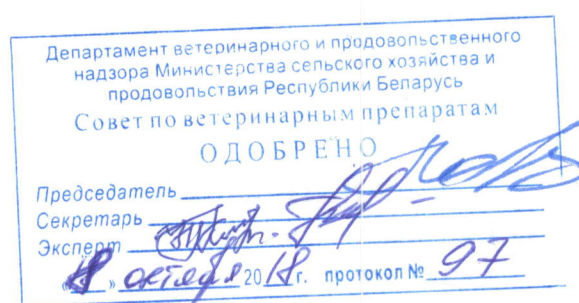 Департамент ветеринарного и продовольственного
надзора Министерства сельского хозяйства и
продовольствия Республики Беларусь
Совет по ветеринарным препаратам
ОДОБРЕНО
Председатель
Секретарь
Эксперт
«18» октября 2018г. протокол № 97